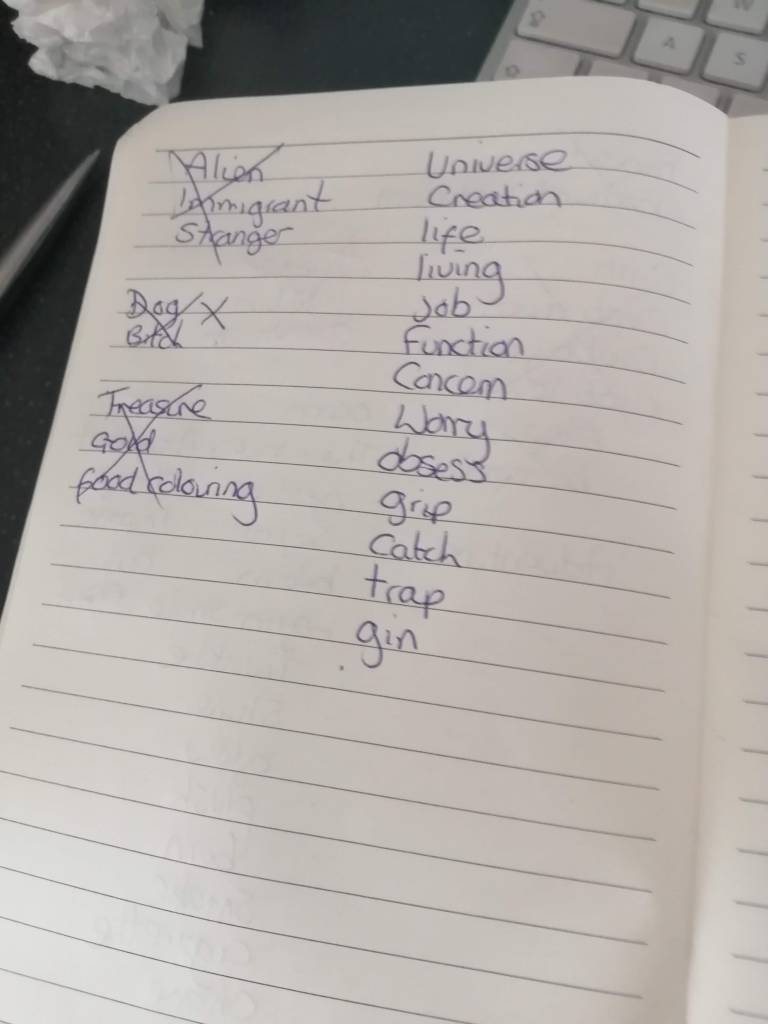 Alien
Immigrant
Stranger
Dog X
Bitch
Treasure
Gold
food colouring
Universe
Creation
life
living
job
function
Concern
Worry
obsess
grip
Catch
trap
gin
W
A
S